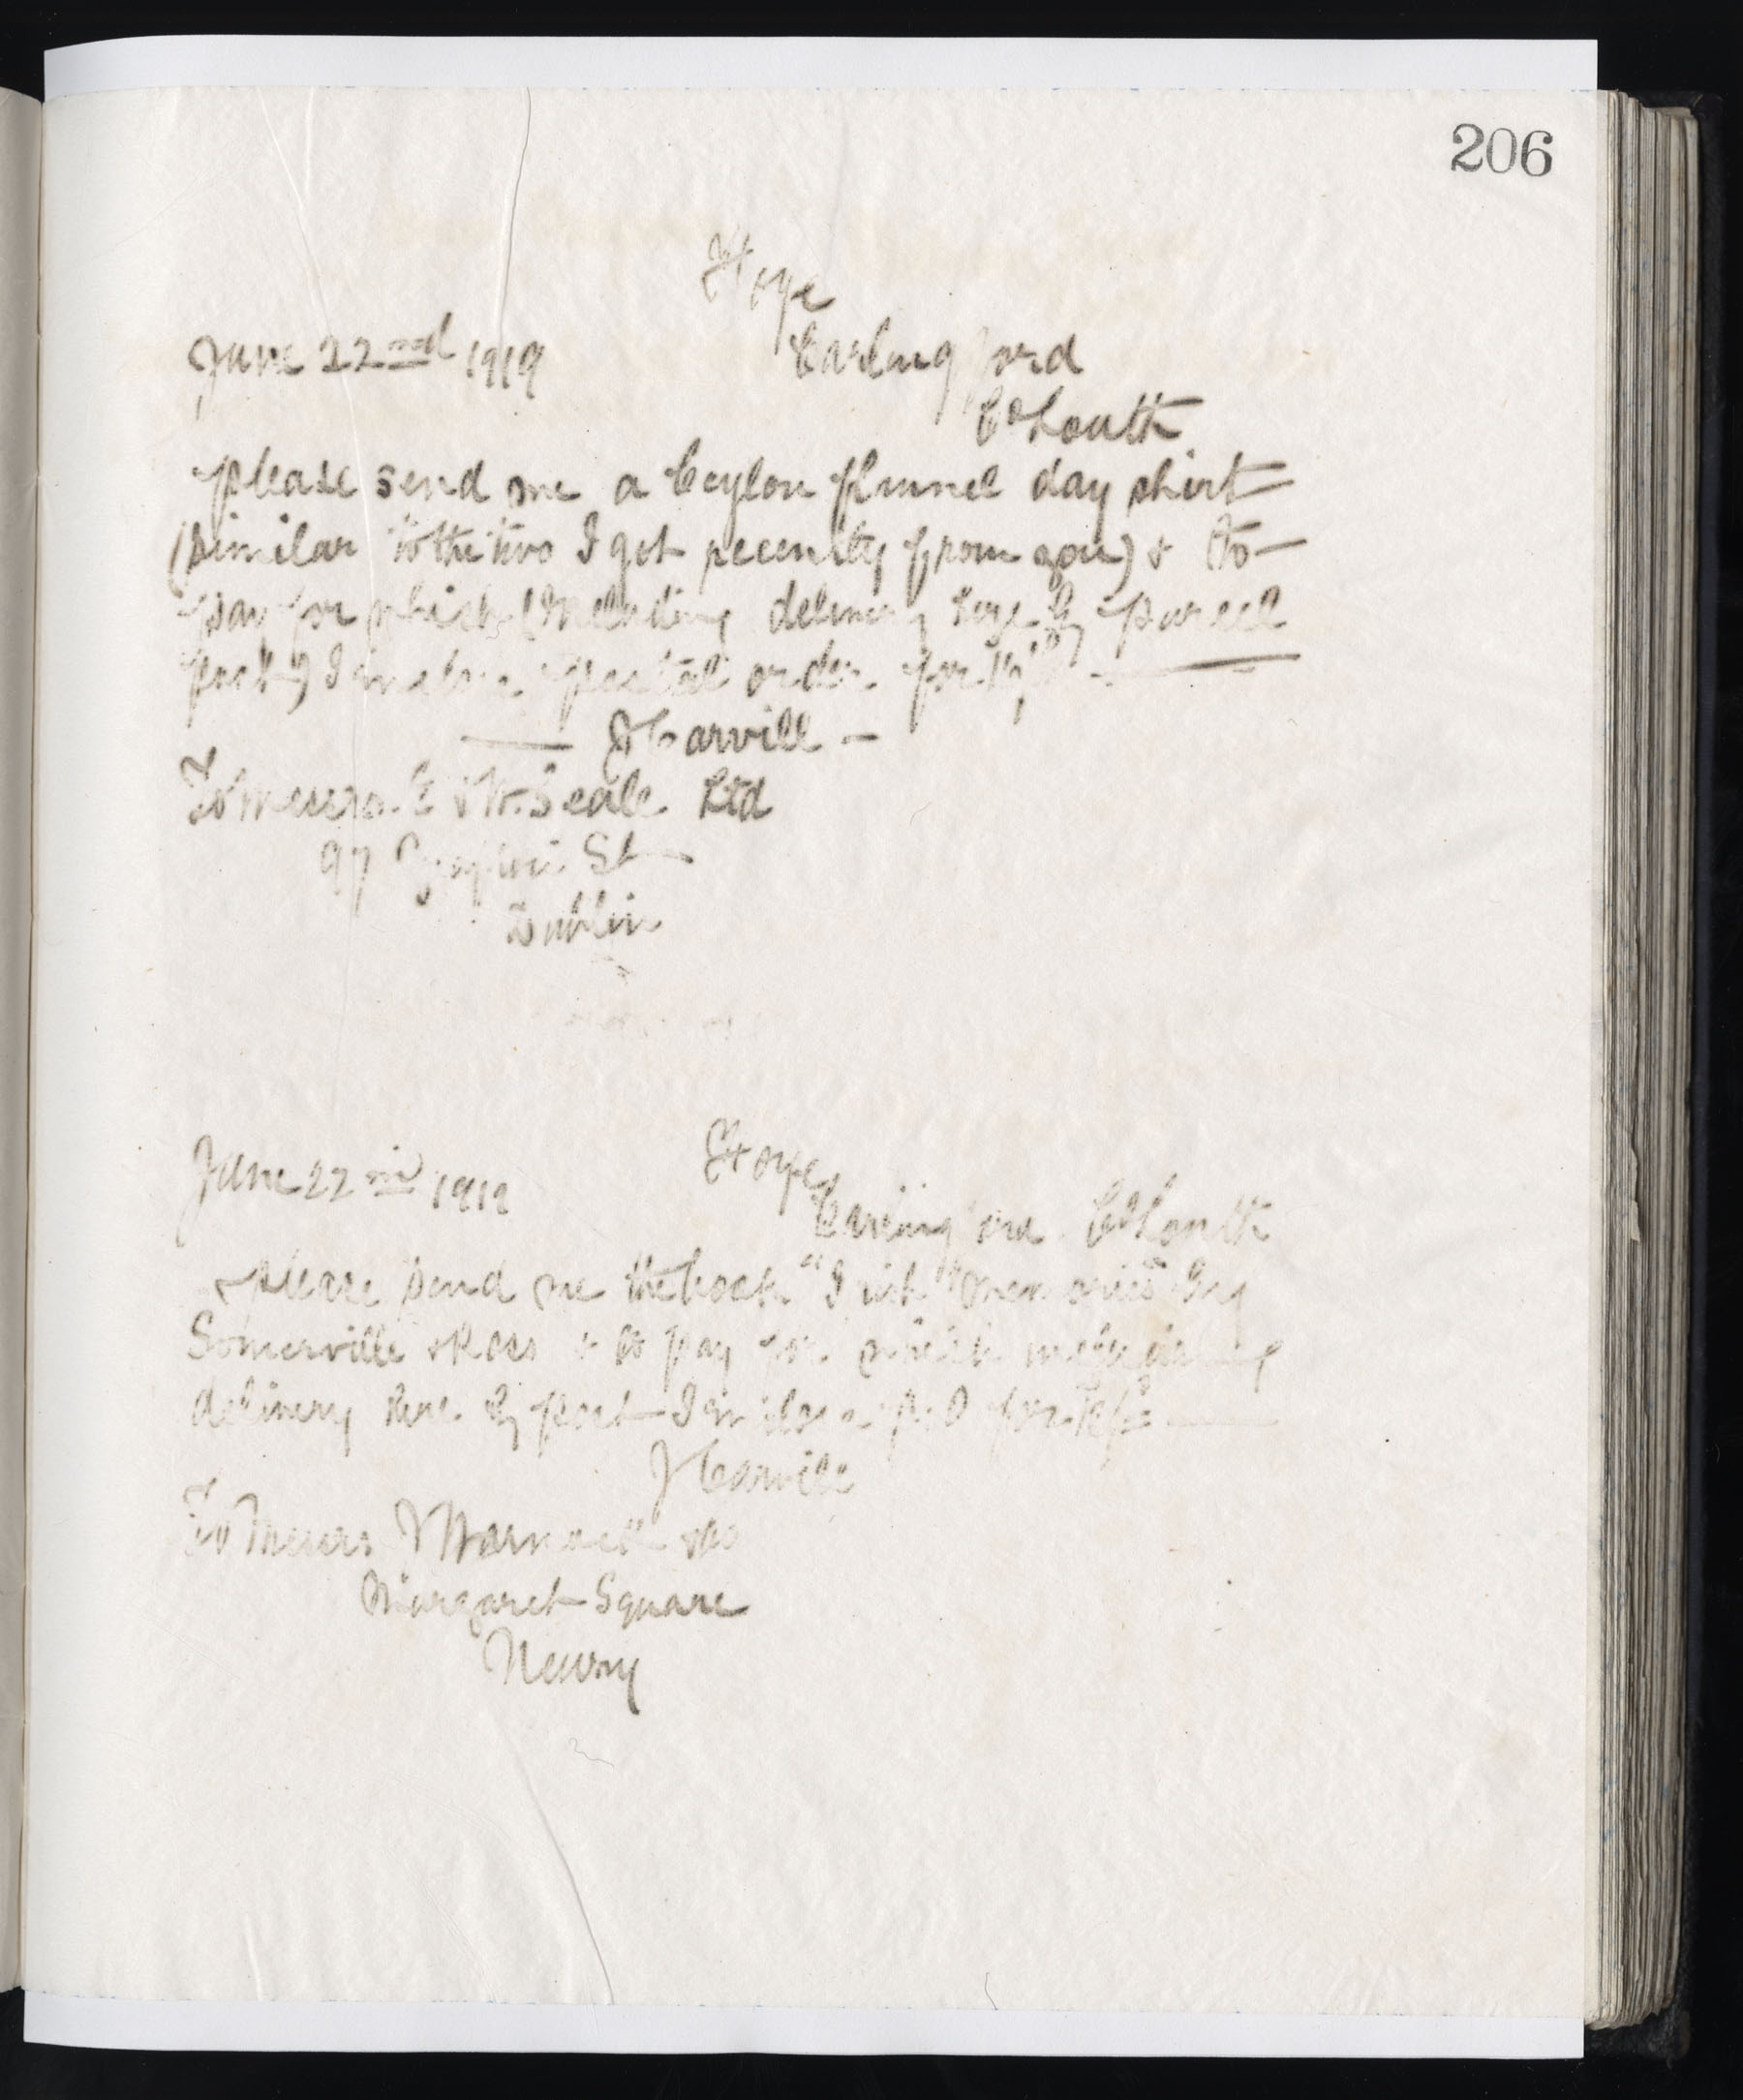 206
Hope
June 22nd 1919 Carlingford
Co Louth
please send me a Ceylon flannel day shirt
(similar to the two I got recently from you) & to
pay for which (including delivery here by parcel
post) I enclose postal order for
J Carvill
To Messrs. E & W. Seale Ltd
97 Grafton St
Dublin
June 22nd 1919 Hope
Carlingford Co Louth
please send me the book "Irish Memories" by
Somerville & Ross & to pay for which
delivery here by post I enclose P.O for
J Carvill
To Messrs J Warnock & Co
Margaret Square
Newry